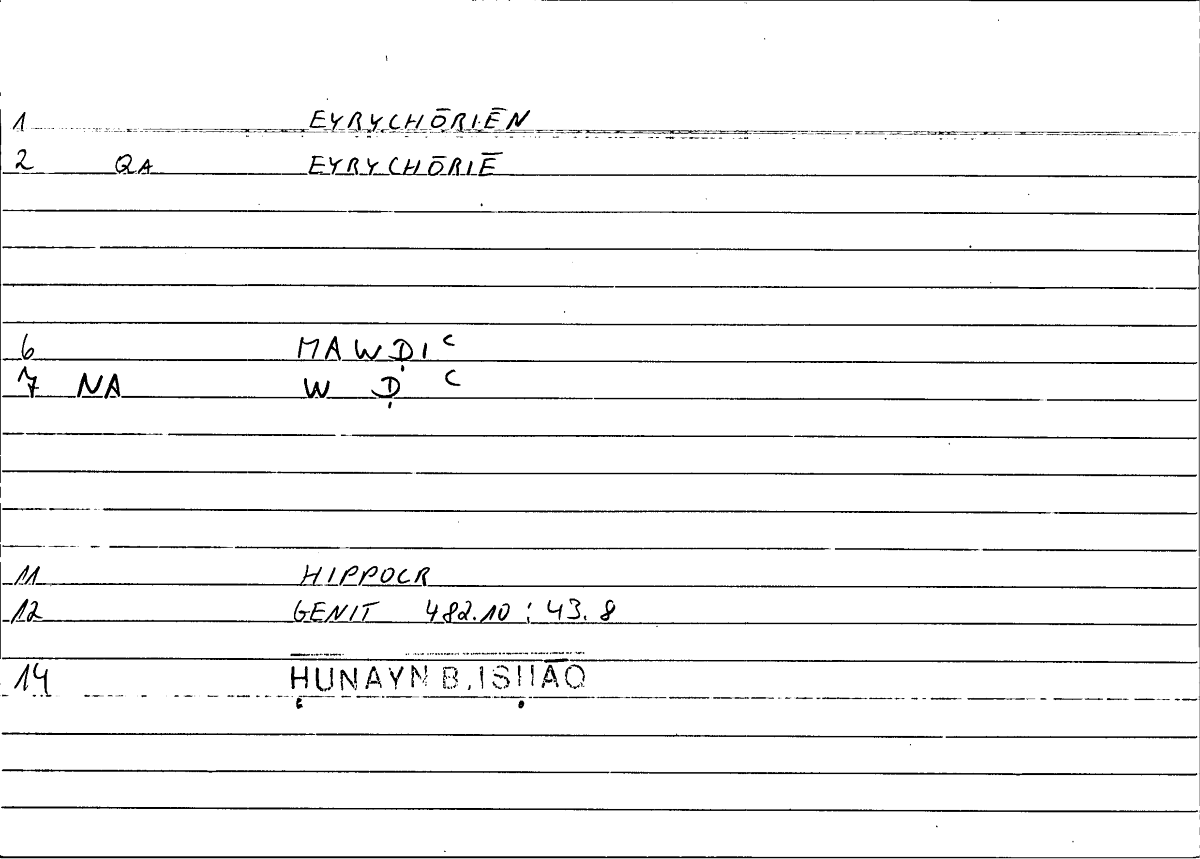 1 EYRYCHŌRIĒN
2 QA EYRYCHŌRIĒ
6 MAWḌIʿ
7 NA W Ḍ ʿ
11 HIPPOCR
12 GENIT 482.10 : 43.8
14 ḤUNAYN B. ISḤĀQ